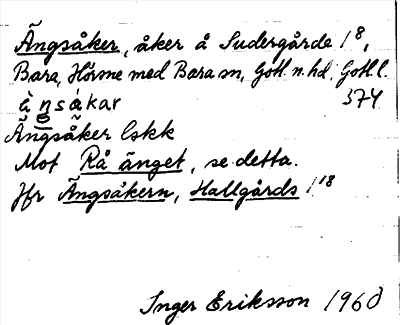 Ängsåker, åker å Sudergårde 1⁸,
Bara, Hörsne med Bara sn, Gotl. n. hd, Gotl. l.
ä̀ŋsákar 374
Ängsåker lskk
Mot Rå änget, se detta.
Jfr Ängsåkern, Hallgårds 1¹⁸
Inger Eriksson 1960